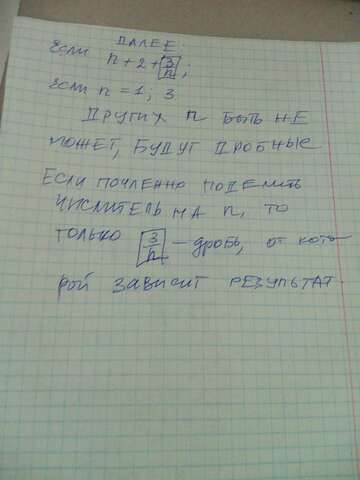 ДАЛЕЕ:
Если n + 2 + 3/n ;
если n = 1; 3
ДРУГИХ n БЫТЬ НЕ
МОЖЕТ, БУДУТ ДРОБНЫЕ
ЕСЛИ ПОЧЛЕННО ПОДЕЛИТЬ
ЧИСЛИТЕЛЬ НА n, ТО
ТОЛЬКО 3/n – дробь, от кото
РОЙ ЗАВИСИТ РЕЗУЛЬТАТ